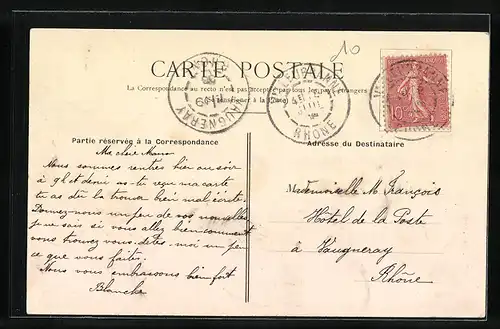 10
CARTE POSTALE
La Correspondance au recto n'est pas acceptée par tous les pays étrangers
(Se renseigner à la Poste)
VAUGNERAY
RHONE
10
Partie réservée à la Correspondance
Adresse du Destinataire
Ma chère
Nous sommes rentrés hier au soir
à 9 h et demi as-tu reçu ma carte
tu as dû la trouver bien mal écrite.
Donnez-nous un peu de vos nouvelles
je ne sais si vous allez bien comment
vous trouvez vous. dites moi un peu
ce que vous faites.
Nous vous embrassons bien fort
Blanche
Mademoiselle M. François
Hôtel de la Poste
à Vaugneray
Rhône